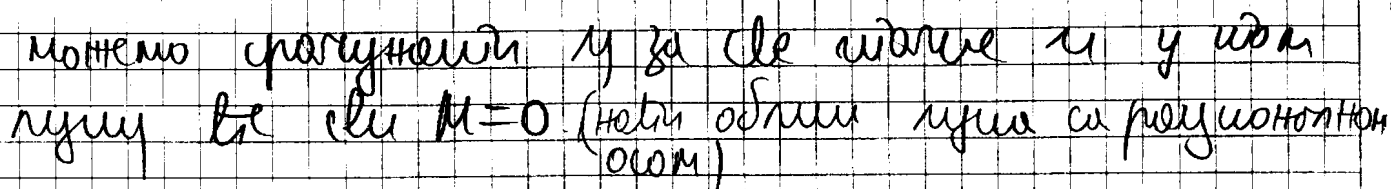 можемо срачунати η за све тачке и у том
луку ће сви M=0 (нови облик лука са рационалном
осом)